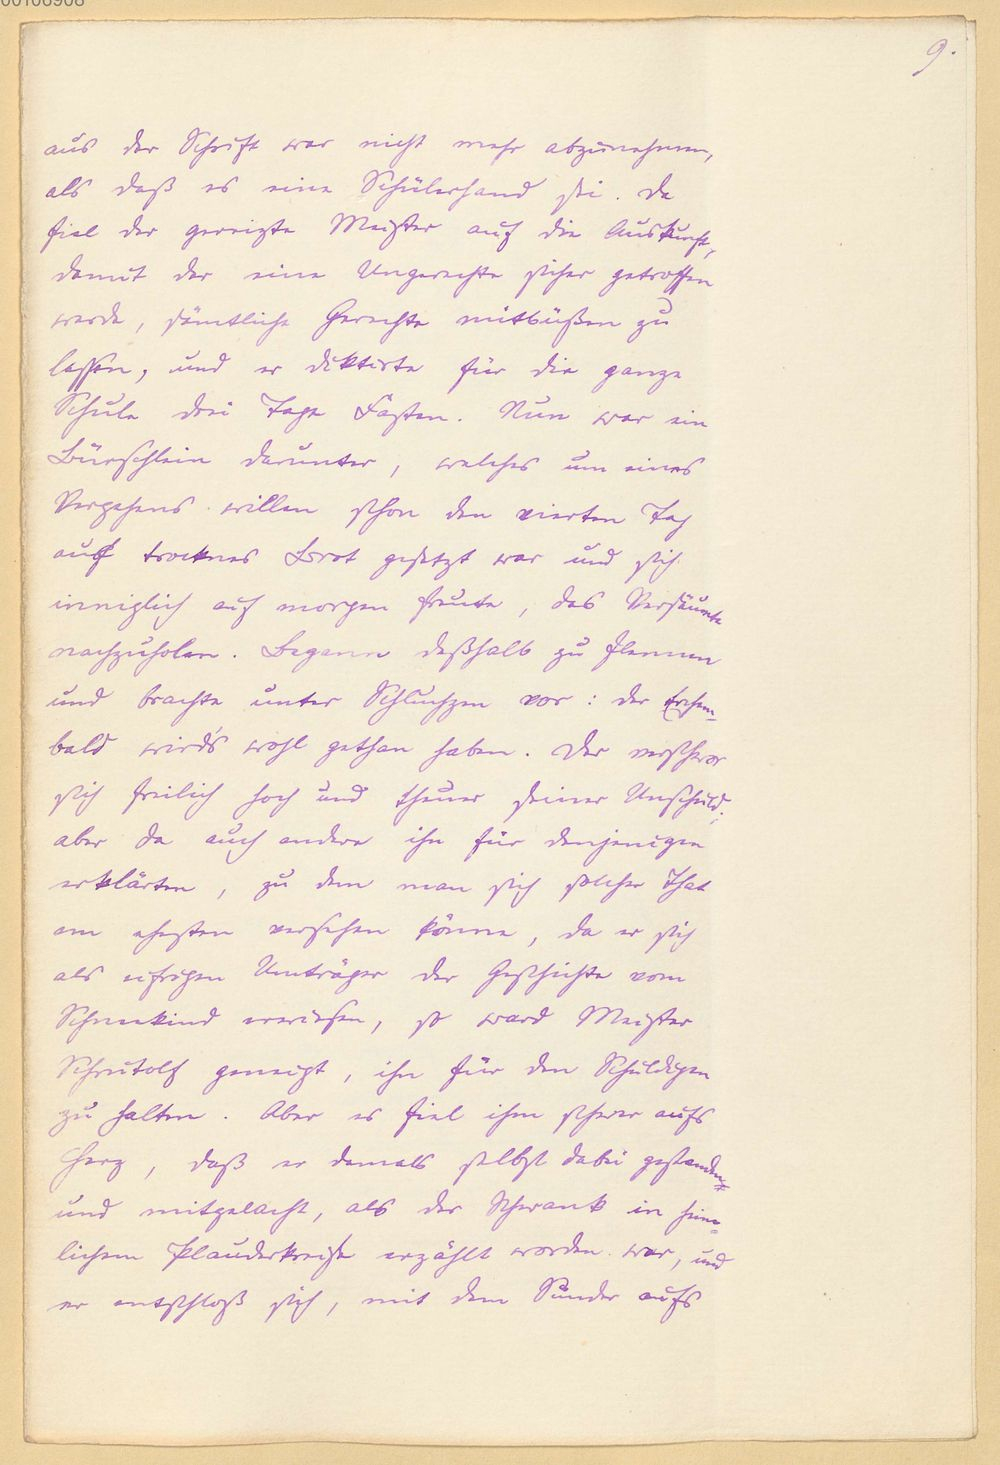 00106908
9.
aus der Schrift war nicht mehr abzunehmen,
als daß es eine Schülerhand sei. Da
fiel der gereizte Meister auf die Auskunft,
damit der eine Ungerechte sicher getroffen
werde, sämtliche Gerechte mitbüßen zu
lassen, und er diktirte für die ganze
Schule drei Tage Fasten. Nun war ein
Bürschlein darunter, welches um eines
Vergehens willen schon den vierten Tag
auf trocknes Brot gesetzt war und sich
inniglich auf morgen freute, das Versäumte
nachzuholen. Begann deßhalb zu flennen
und brachte unter Schluchzen vor: der Erchem-
bald wird's wohl gethan haben. Der verschwor
sich freilich hoch und theuer seiner Unschuld;
aber da auch andere ihn für denjenigen
erklärten, zu dem man sich solcher That
am ehesten versehen könne, da er sich
als eifrigen Umträger der Geschichte vom
Schneekind erwiesen, so ward Meister
Schrutolf geneigt, ihn für den Schuldigen
zu halten. Aber es fiel ihm schwer aufs
Herz, daß er damals selbst dabei gestanden
und mitgelacht, als der Schwank in heim-
lichem Plauderkreise erzählt worden war, und
er entschloß sich, mit dem Sünder aufs